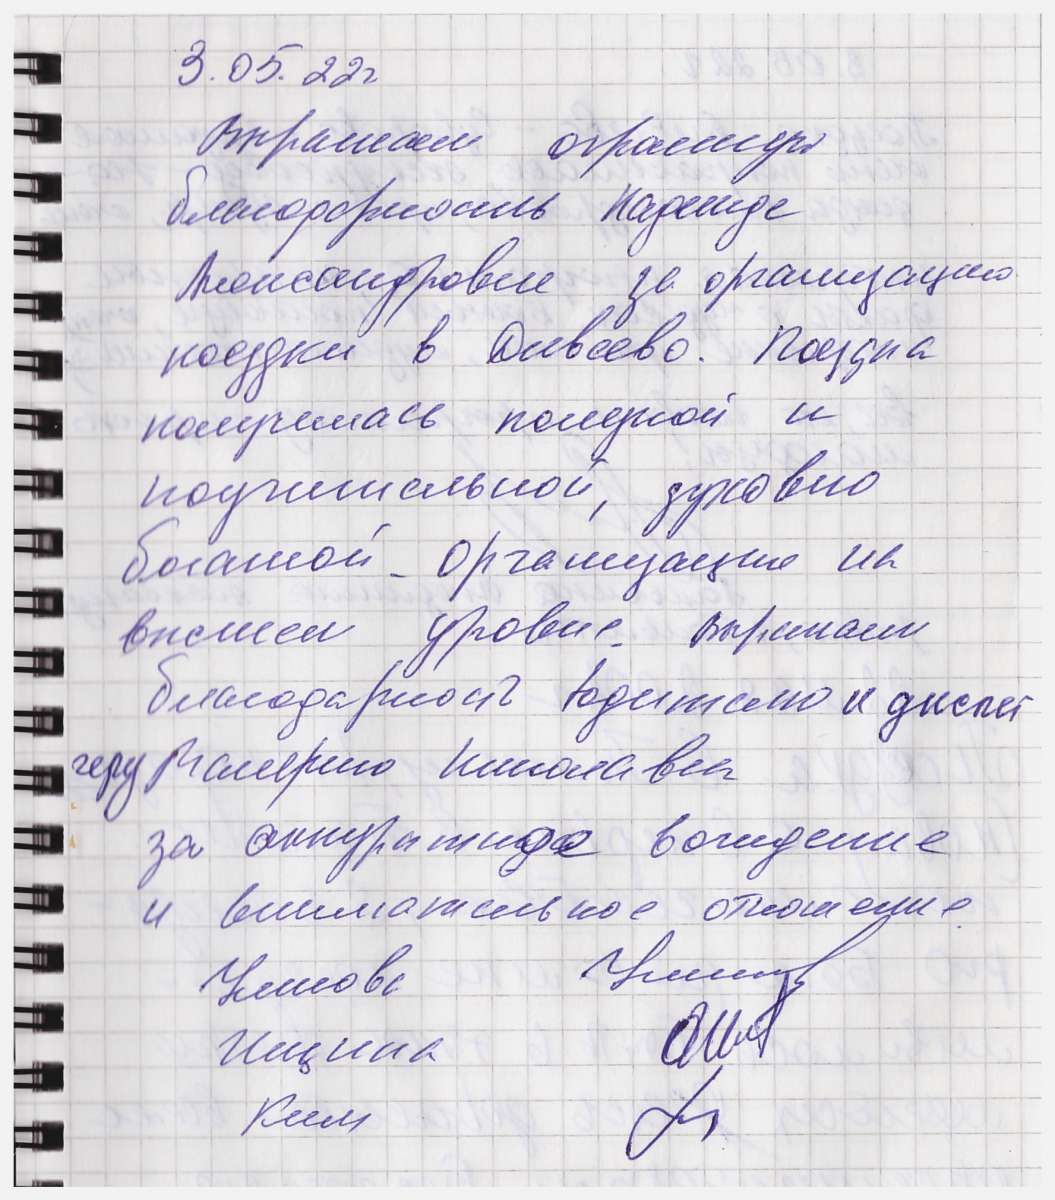 3.05.22г
Выражаем огромную
благодарность Надежде
Александровне за организацию
поездки в Дивеево. Поездка
получилась полезной и
поучительной, духовно
богатой. Организация на
высшем уровне. Выражаем
благодарность Водителю и диспет
черу Валерию Николаевичу
за аккуратное вождение
и внимательное отношение
Ким